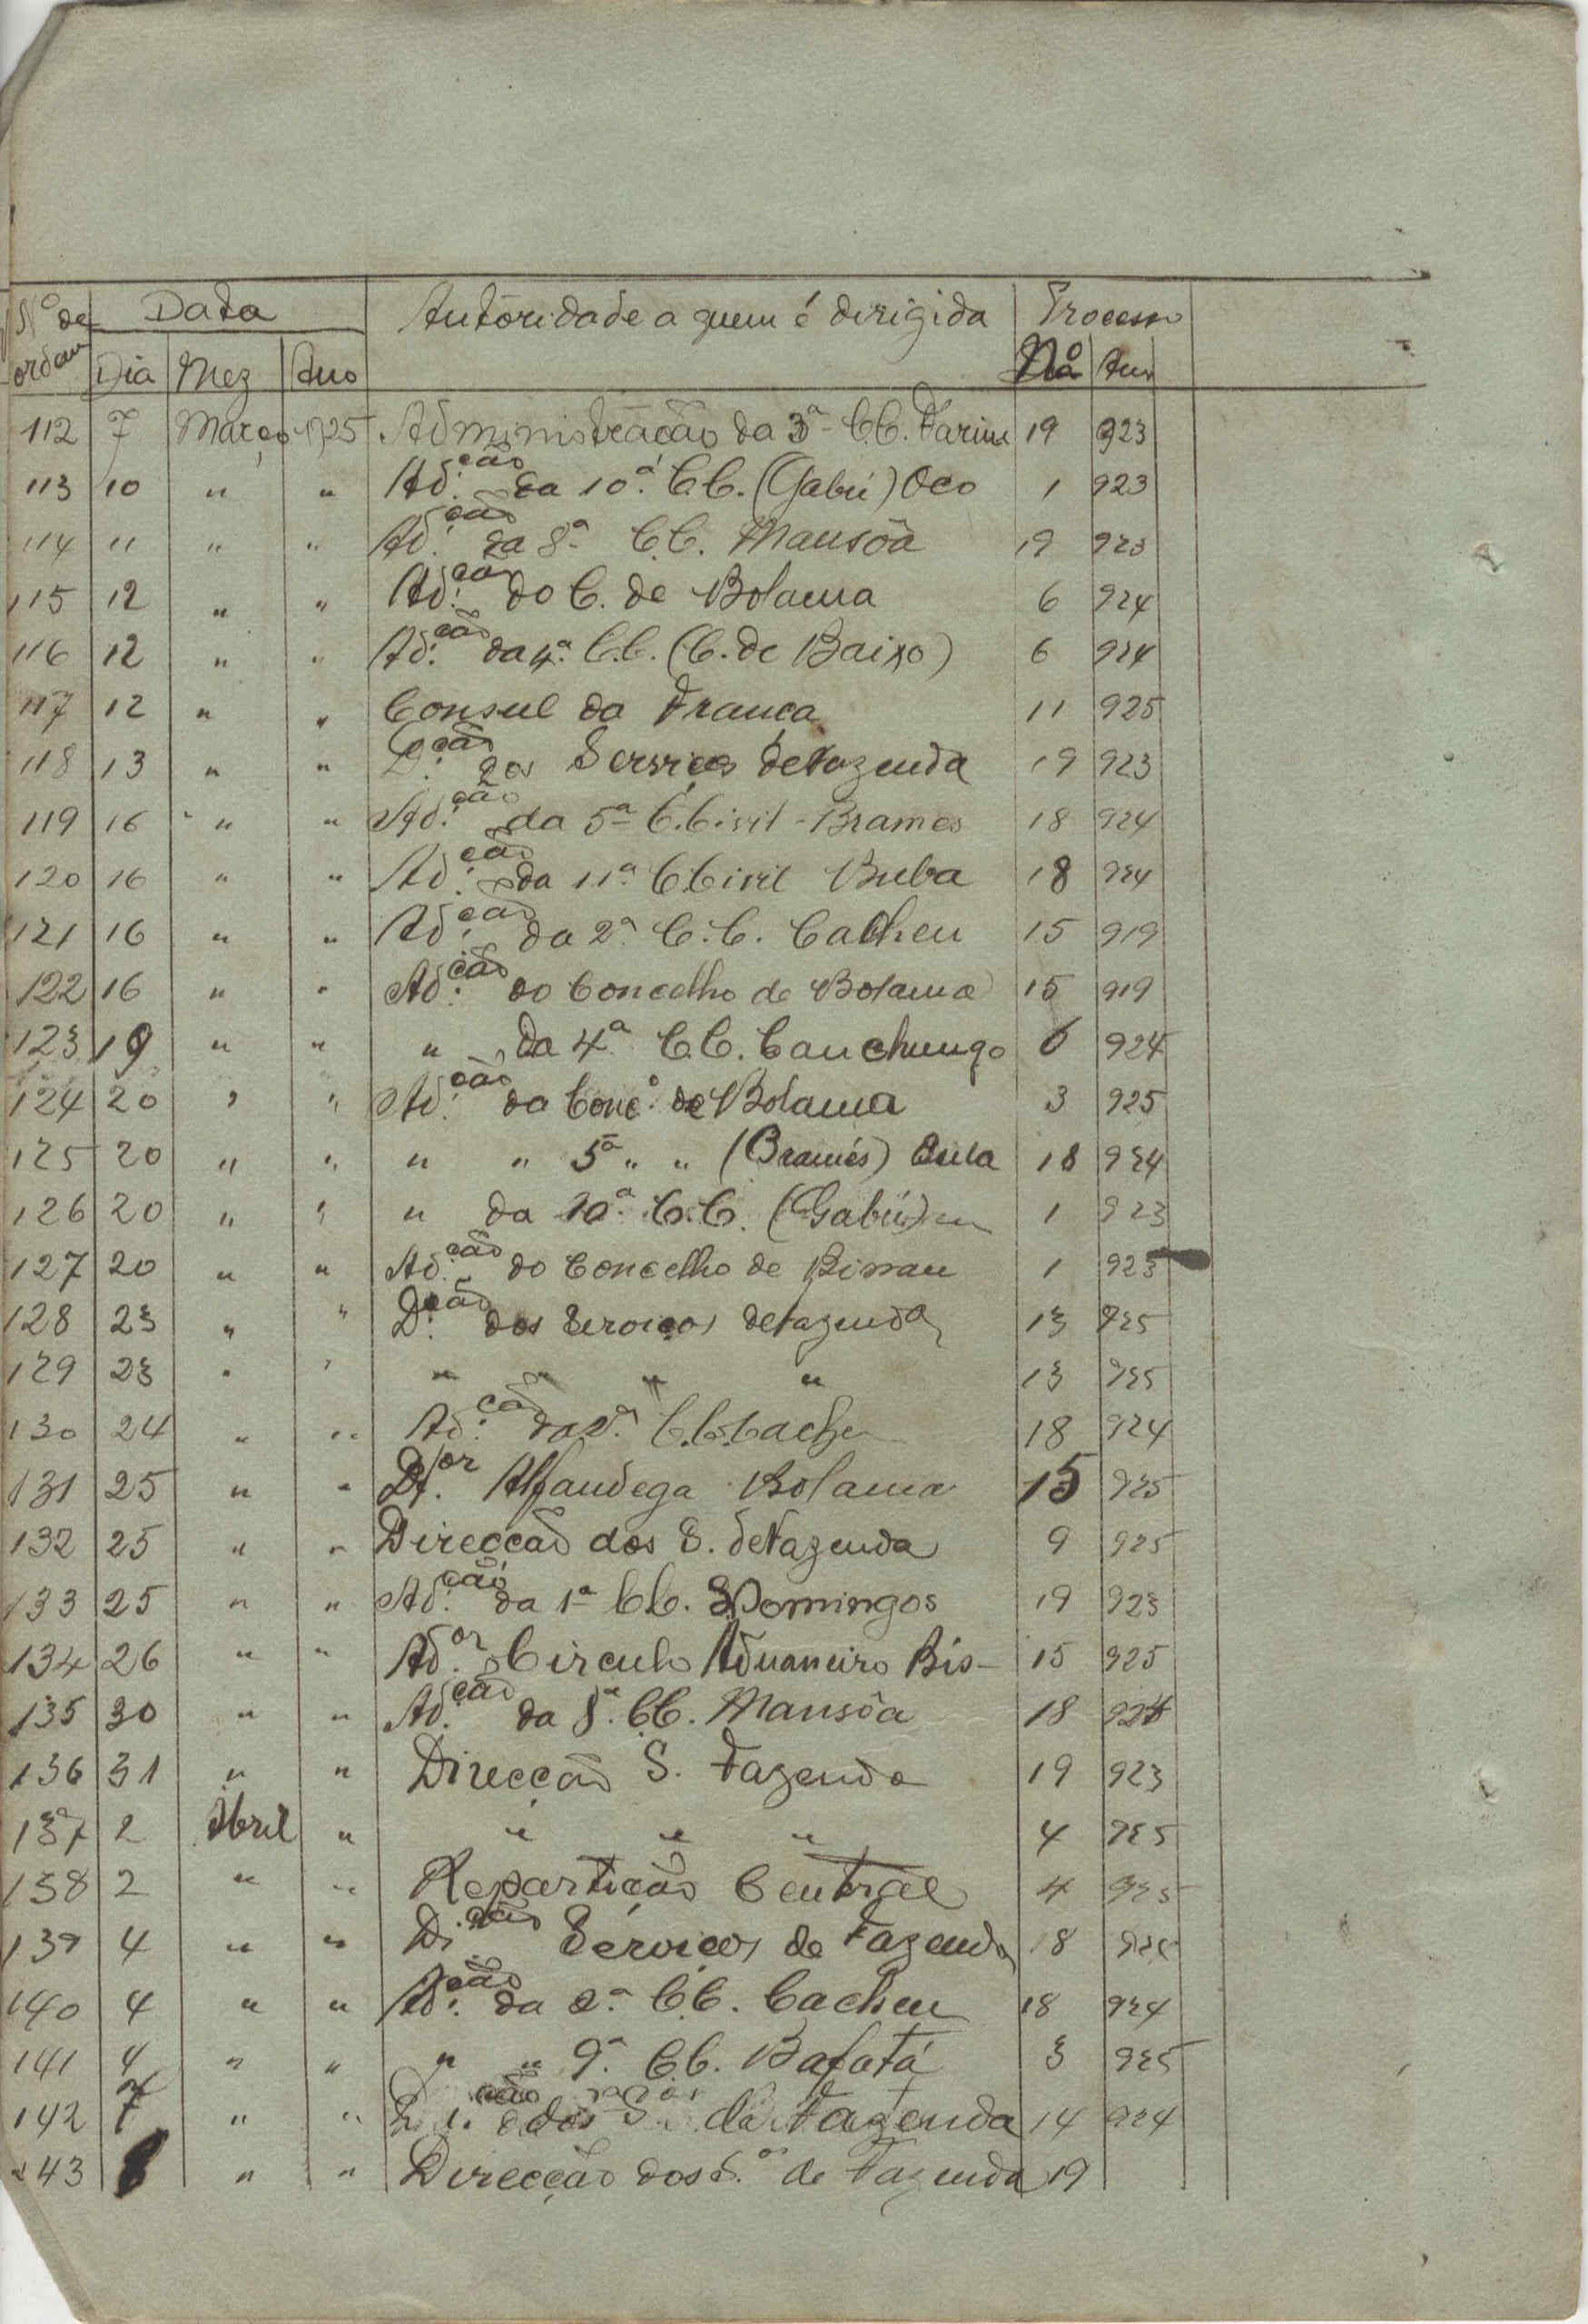 Nº de ordem Data Autoridade a quem é dirigida Processo
Dia Mez Ano Nº Ano
112 7 Março 1925 Administração da 3ª C.C. Farim 19 923
113 10 " " Ad.ção da 10ª C.C. (Gabú) Oco 1 923
114 11 " " Ad.ção da 8ª C.C. Mansôa 19 923
115 12 " " Ad.ção do C. de Bolama 6 924
116 12 " " Ad.ção da 4ª C.C. (C. de Baixo) 6 924
117 12 " " Consul da França 11 925
118 13 " " D.ção dos Serviços de Fazenda 19 923
119 16 " " Ad.ção da 5ª C. Civil - Brames 18 924
120 16 " " Ad.ção da 11ª C. Civil Buba 18 924
121 16 " " Ad.ção da 2ª C.C. Cacheu 15 919
122 16 " " Ad.ção do Concelho de Bolama 15 919
123 19 " " " da 4ª C.C. Canchungo 6 924
124 20 " " Ad.ção da Conc.º de Bolama 3 925
125 20 " " " " 5ª " " (Bramés) Bula 18 924
126 20 " " " da 10ª C.C. (Gabú) 1 923
127 20 " " Ad.ção do Concelho de Bissau 1 923
128 23 " " D.ção dos Serviços de Fazenda 13 925
129 23 " " " " " " 13 925
130 24 " " Ad.ção da 2ª C.C. Cacheu 18 924
131 25 " " Dt.or Alfandega Bolama 15 925
132 25 " " Direcção dos S. de Fazenda 9 925
133 25 " " Ad.ção da 1ª C.C. S Domingos 19 923
134 26 " " Ad.or Circulo Aduaneiro Bis- 15 925
135 30 " " Ad.ção da 8ª C.C. Mansôa 18 924
136 31 " " Direcção S. Fazenda 19 923
137 2 Abril " " " " 4 925
138 2 " " Repartição Central 4 925
139 4 " " Di.ção Serviços de Fazenda 18
140 4 " " Ad.ção da 2ª C.C. Cacheu 18 924
141 4 " " " " 9ª C.C. Bafatá 3 925
142 7 " " dos S. de Fazenda 14 924
143 8 " " Direcção dos S.os de Fazenda 19